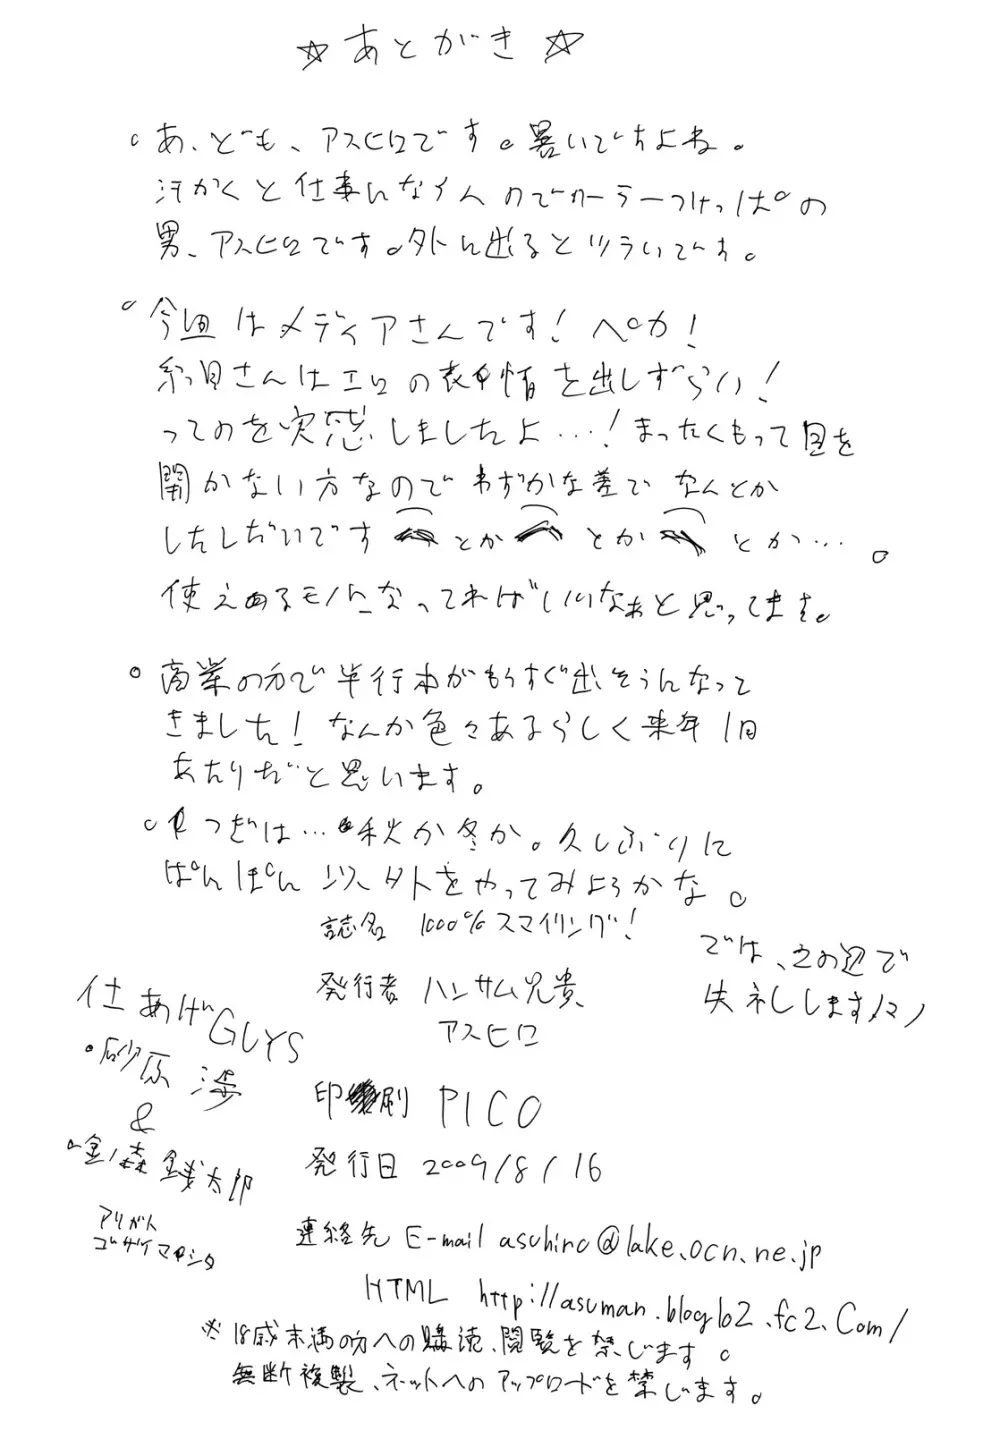 ☆あとがき☆
。あ、ども、アスヒロです。暑いですよね。
汗かくと仕事になんないのでクーラーつけっぱの
男、アスヒロです。外に出るとツライです。
。今回はメディアさんです!ペカ!
糸目さんはエロの表情を出しずらい!
ってのを実感しましたよ…!まったくもって目を
開かない方なのでわずかな差でなんとか
したしだいです とか とか とか…。
使えるモノになってればいいなぁと思ってます。
。商業の方で単行本がもうすぐ出そうんなって
きました!なんか色々あるらしく来年1月
あたりだと思います。
。つぎは…秋か冬か。久しぶりに
ぱんぽん以外をやってみようかな。
誌名 1000%スマイリング!
では、この辺で
失礼します
発行者 ハンサム兄貴
アスヒロ
仕あげGUYS
・砂原 渉
&
・金ノ森 銭太郎
アリガト
ゴザイマシタ
印刷 PICO
発行日 2009/8/16
連絡先 E-mail asuhiro@lake.ocn.ne.jp
HTML http://asuman.blog102.fc2.com/
※18歳未満の方への購読、閲覧を禁じます。
無断複製、ネットへのアップロードを禁じます。